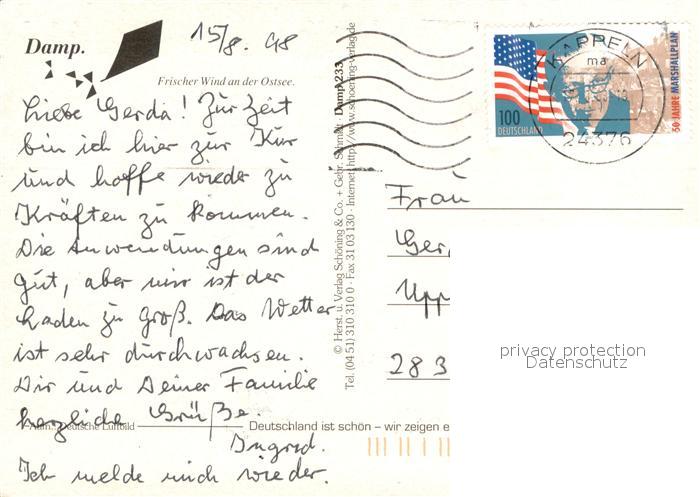 Damp.
15/8. 98
Frischer Wind an der Ostsee.
Liebe Gerda! Zur Zeit
bin ich hier zur Kur
und hoffe wieder zu
Kräften zu kommen.
Die Anwendungen sind
gut, aber mir ist der
Laden zu groß. Das Wetter
ist sehr durchwachsen.
Dir und Deiner Familie
herzliche Grüße.
Ingrid.
Ich melde mich wieder.
Aufn.: Deutsche Luftbild
Deutschland ist schön – wir zeigen e
© Herst. u. Verlag Schöning & Co. + Gebr. Schmidt · Damp 233
Tel. (04 51) 310 310 0 · Fax 31 03 130 · Internet: http://www.schoening-verlag.de
KAPPELN
ma
24376
100
DEUTSCHLAND
50 JAHRE MARSHALLPLAN
Frau
Ger
Upp
28 3
privacy protection
Datenschutz